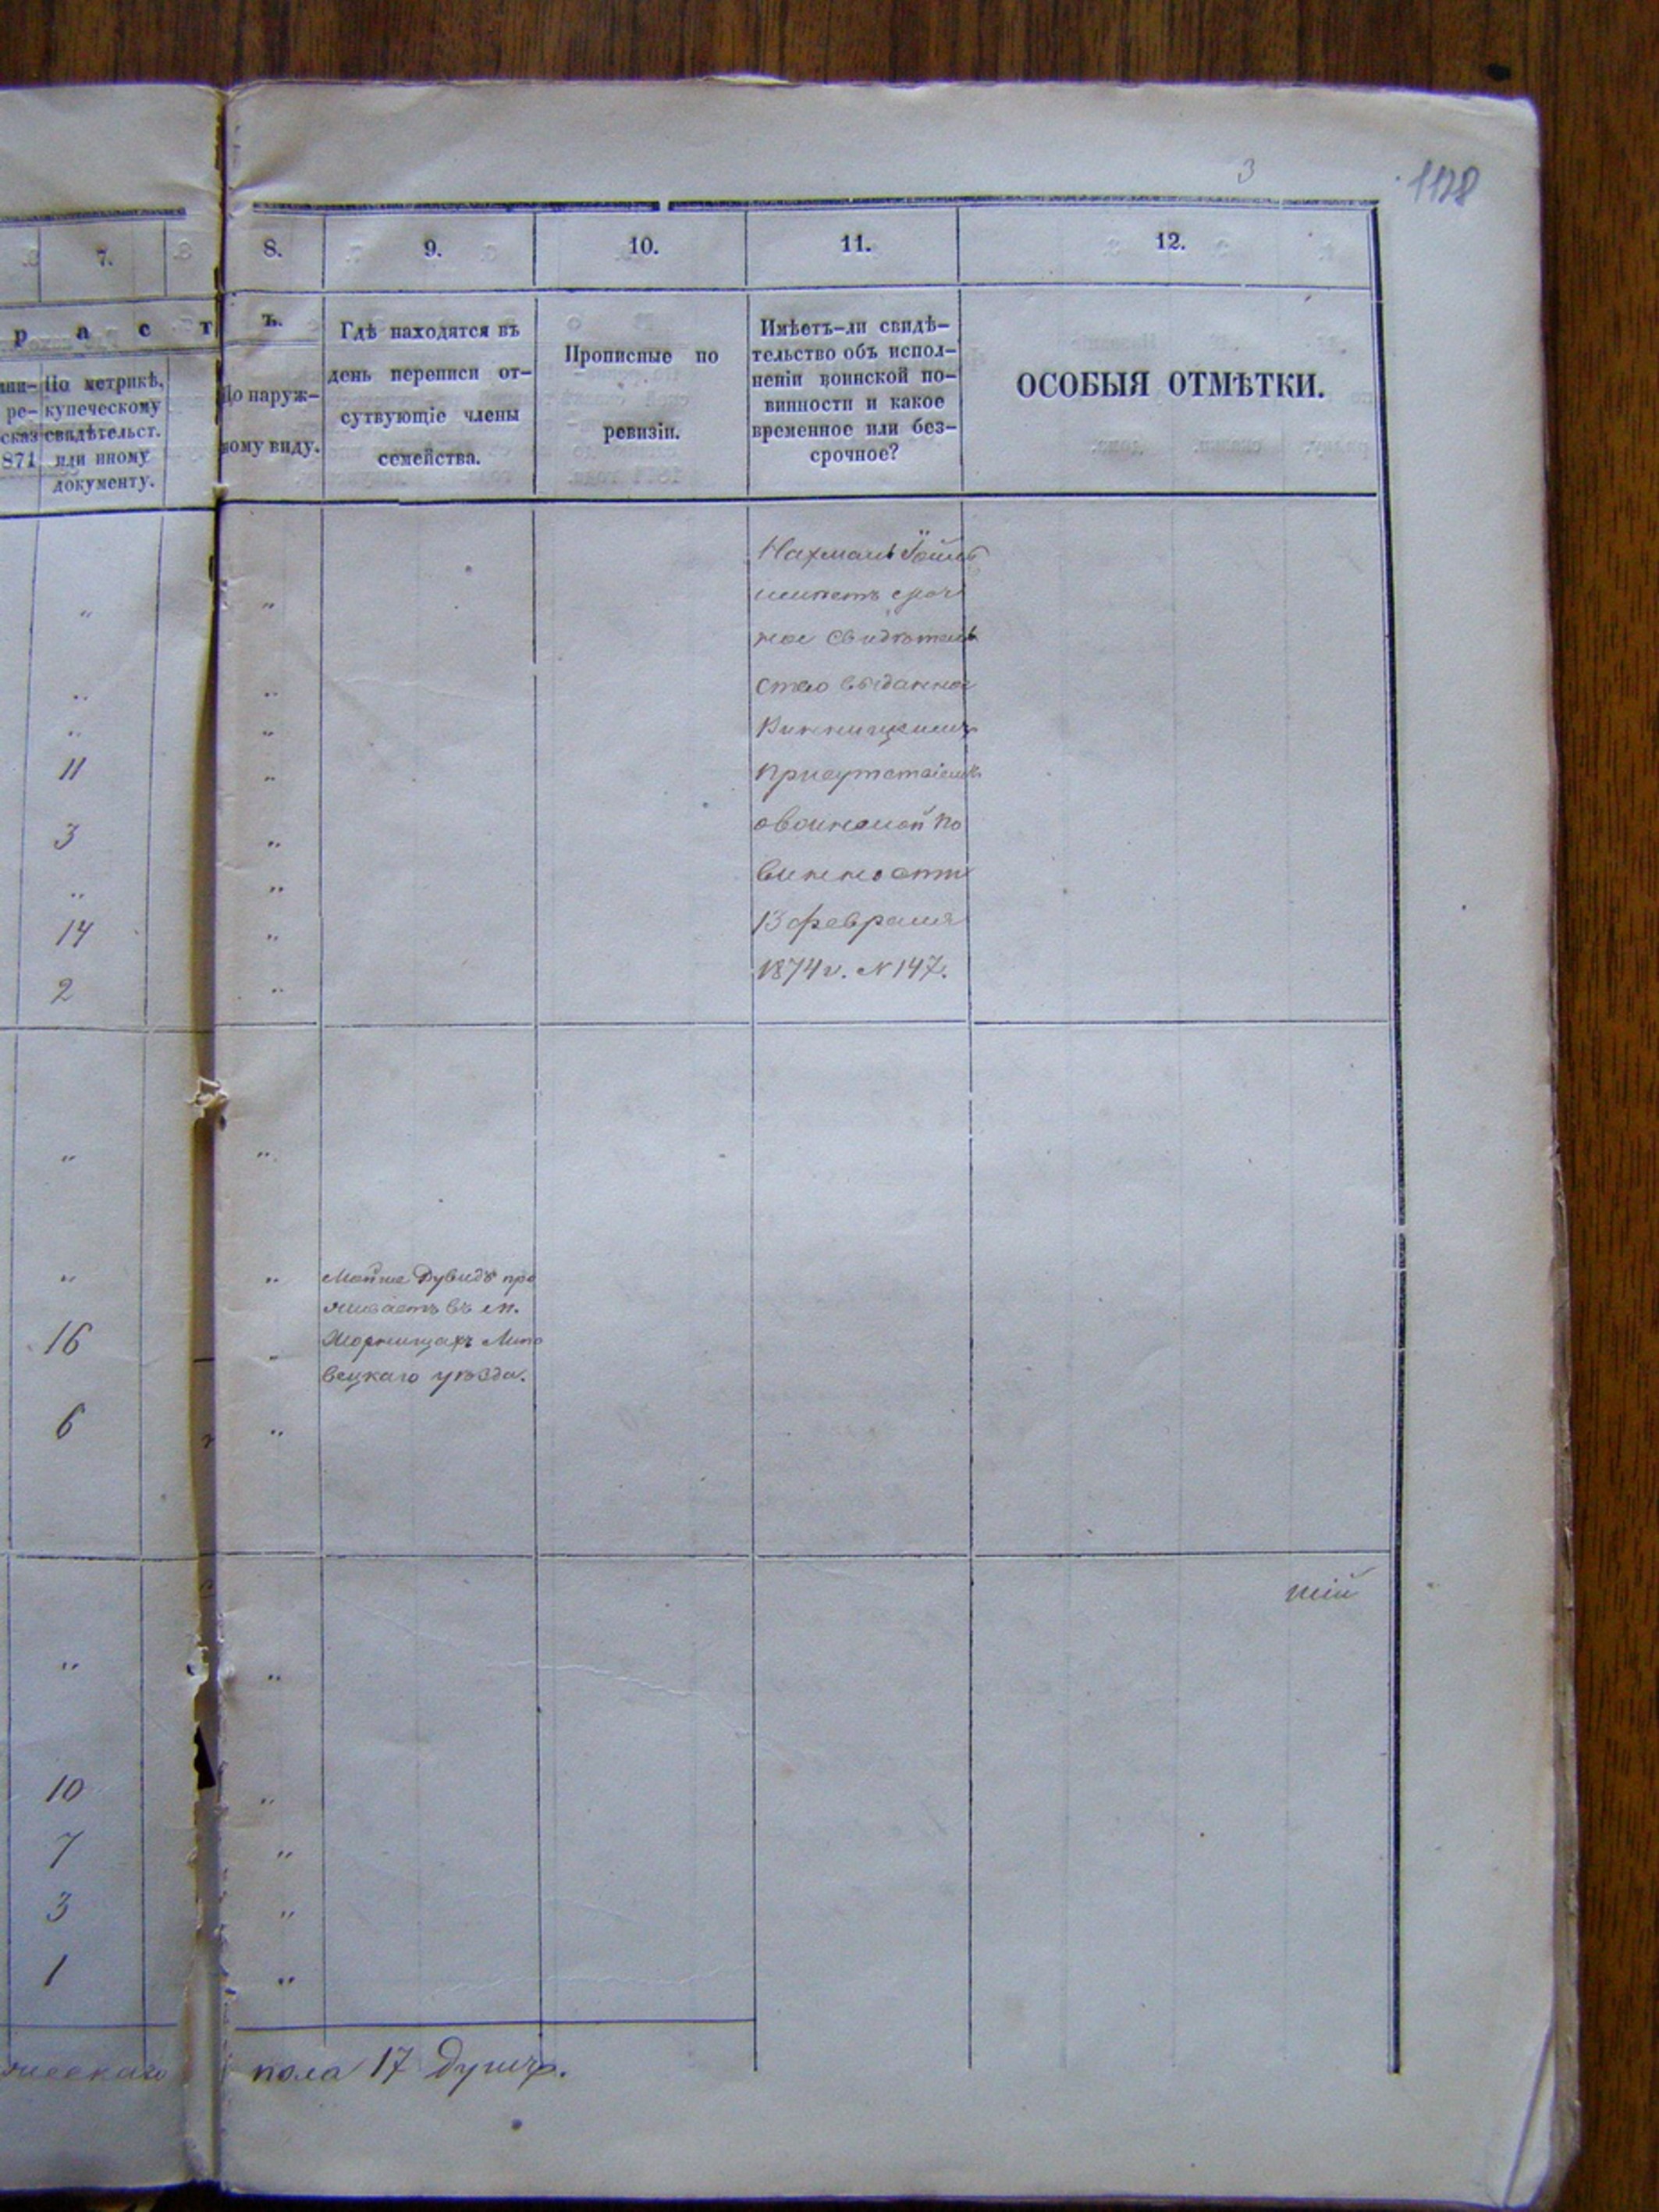 3
1128
7.
8.
9.
10.
11.
12.
р а с т
ъ.
По метрикѣ, купеческому свидѣтельст. или иному документу.
871
По наруж-
ному виду.
Гдѣ находятся въ
день переписи от-
сутвующіе члены
семейства.
Прописные по
ревизіи.
Имѣетъ-ли свидѣ-
тельство объ испол-
неніи воинской по-
винности и какое
временное или без-
срочное?
ОСОБЫЯ ОТМѢТКИ.
Нахманъ
имѣетъ сроч
ное Свидѣтель
ство выданное
Винницкимъ
присутствіемъ
о воинской по
винности
13 февраля
1874 г. N 147.
11
3
14
2
Мойше Дувидъ про
живаетъ въ м.
Жорнищахъ Липо
вецкаго уѣзда.
16
6
шій
10
7
3
1
пола 17 душъ.